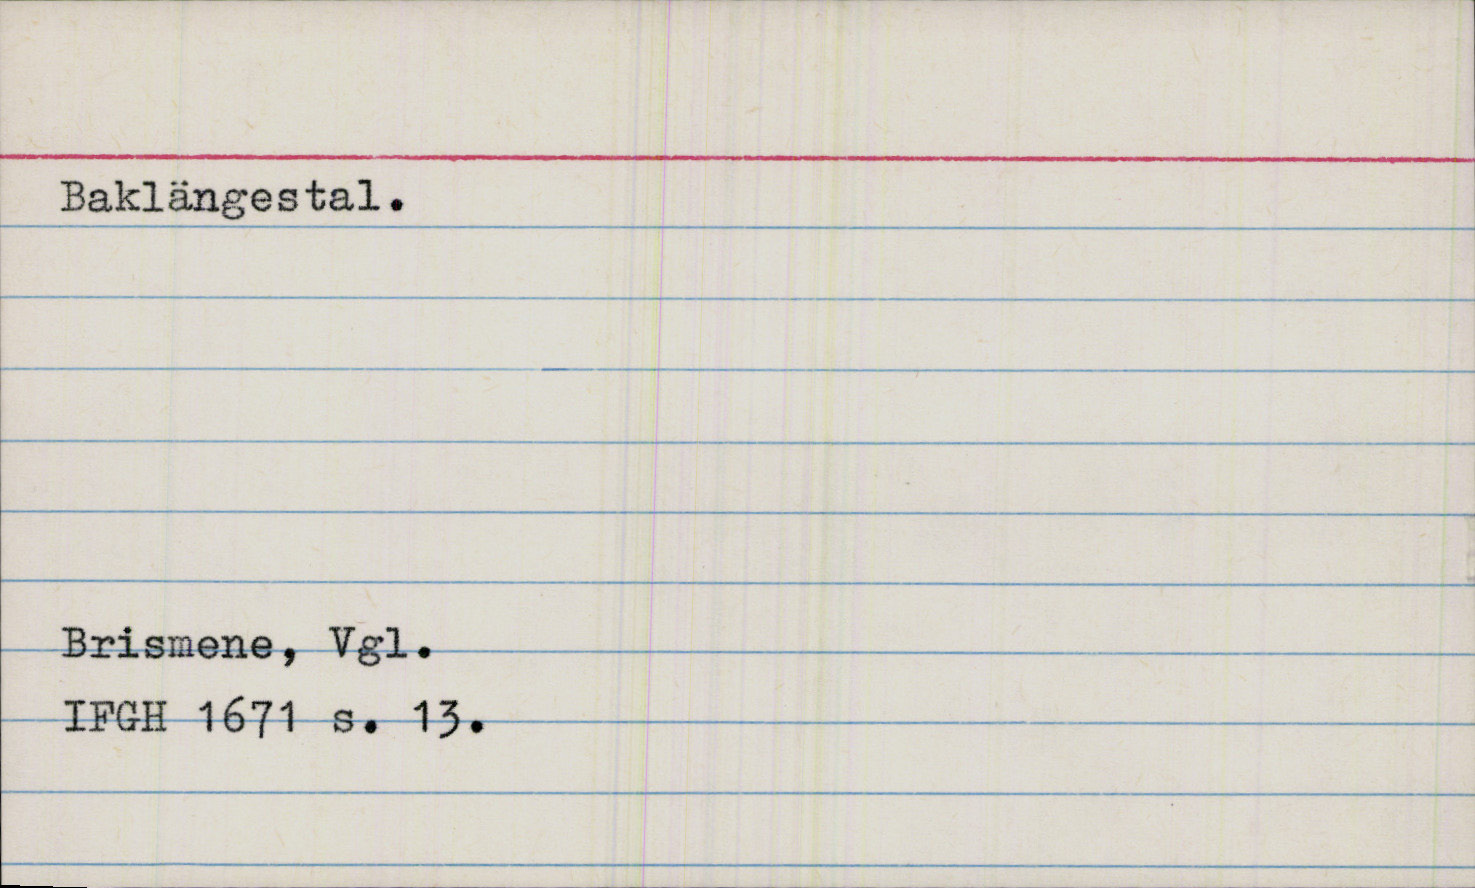 Baklängestal.
Brismene, Vgl.
IFGH 1671 s. 13.